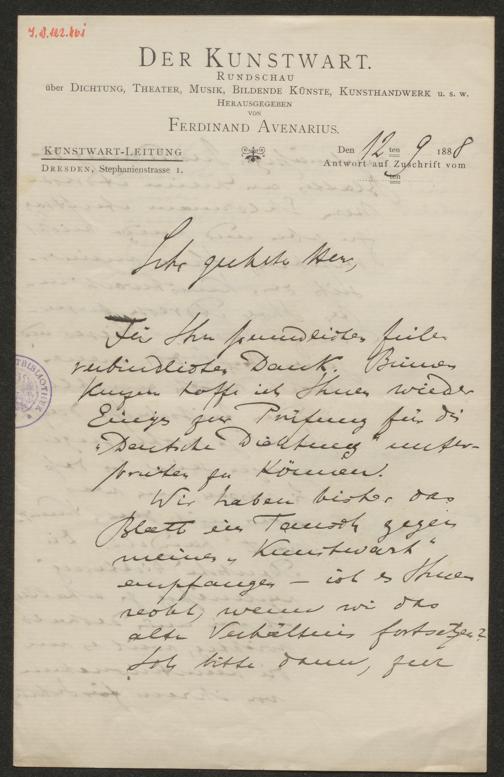 I.N.112.801
DER KUNSTWART.
RUNDSCHAU
über DICHTUNG, THEATER, MUSIK, BILDENDE KÜNSTE, KUNSTHANDWERK u. s. w.
HERAUSGEGEBEN
VON
FERDINAND AVENARIUS.
KUNSTWART-LEITUNG
DRESDEN, Stephanienstrasse 1.
Den 12 ten 9 1888
Antwort auf Zuschrift vom
ten
Sehr geehrter Herr,
Für Ihre freundlichen Zeilen
verbindlichen Dank. Binnen
Kurzem hoffe ich Ihnen wieder
Einiges zur Prüfung für die
„Deutsche Dichtung" unter-
breiten zu können.
Wir haben bisher das
Blatt im Tausch gegen
meinen „Kunstwart"
empfangen – ist es Ihnen
recht, wenn wir das
alte Verhältnis fortsetzen?
Ich bitte dann, zur